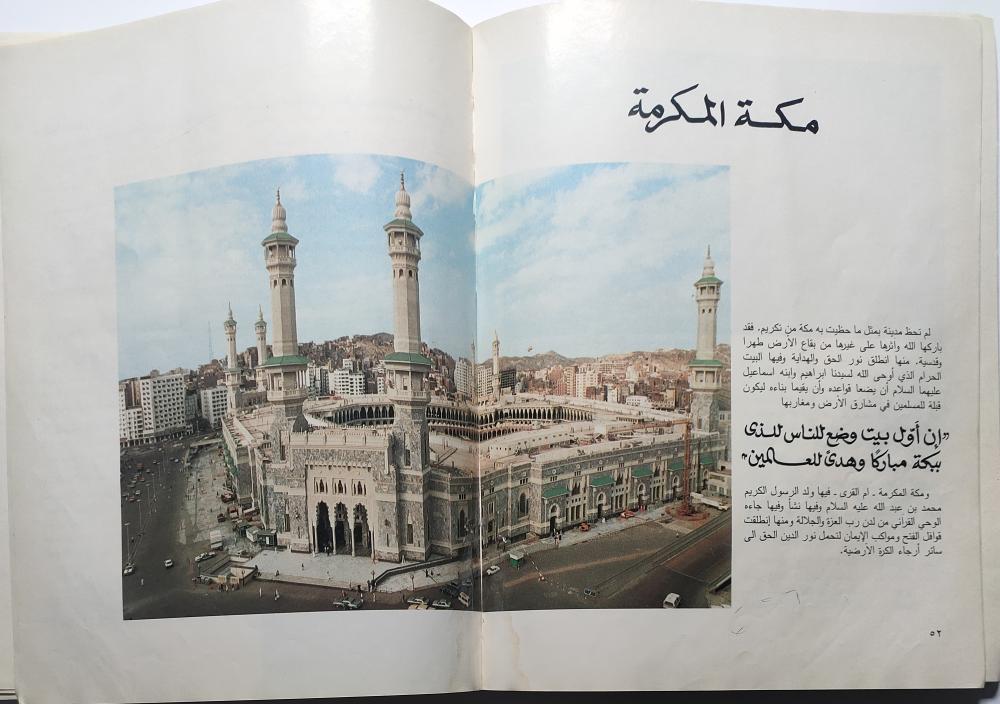 مكة المكرمة
لم تحظ مدينة بمثل ما حظيت به مكة من تكريم. فقد
باركها الله واثرها على غيرها من بقاع الارض طهرا
وقدسية. منها انطلق نور الحق والهداية وفيها البيت
الحرام الذي أوحى الله لسيدنا ابراهيم وابنه اسماعيل
عليهما السلام أن يضعا قواعده وأن يقيما بناءه ليكون
قبلة للمسلمين في مشارق الارض ومغاربها
"إن أوّل بيت وضع للناس للذى
ببكة مباركًا وهدىً للعالمين"
ومكة المكرمة ـ ام القرى ـ فيها ولد الرسول الكريم
محمد بن عبد الله عليه السلام وفيها نشأ وفيها جاءه
الوحي القرآني من لدن رب العزة والجلالة ومنها إنطلقت
قوافل الفتح ومواكب الإيمان لتحمل نور الدين الحق الى
سائر أرجاء الكرة الارضية.
٥٢